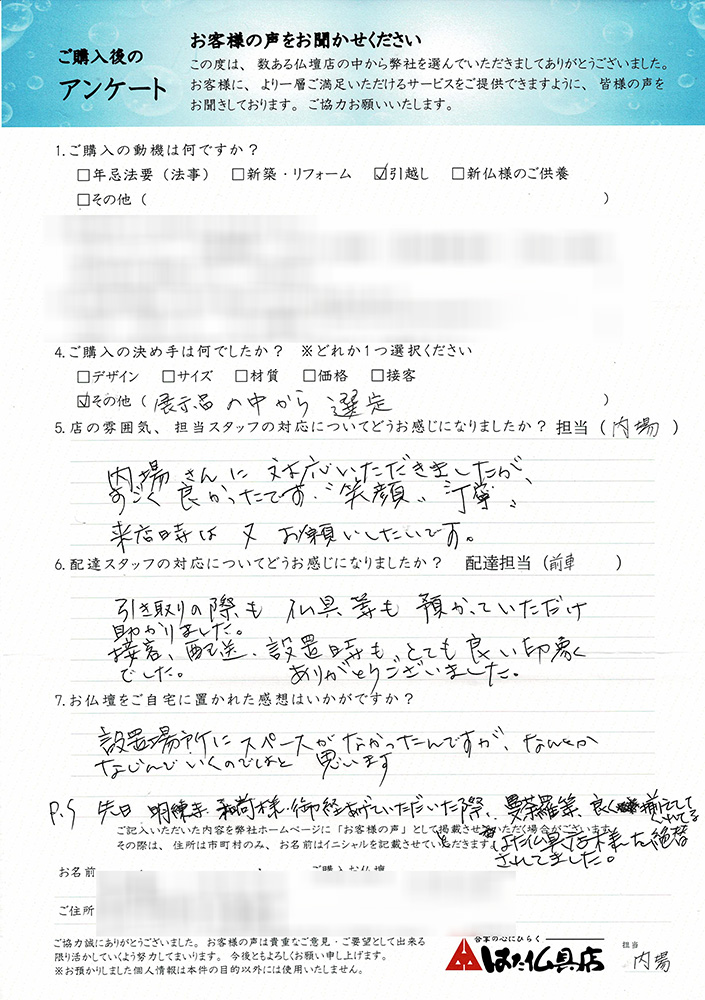 ご購入後の
アンケート
お客様の声をお聞かせください
この度は、数ある仏壇店の中から弊社を選んでいただきましてありがとうございました。
お客様に、より一層ご満足いただけるサービスをご提供できますように、皆様の声を
お聞きしております。ご協力お願いいたします。
1.ご購入の動機は何ですか？
□年忌法要（法事） □新築・リフォーム ☑引越し □新仏様のご供養
□その他（ ）
4.ご購入の決め手は何でしたか？ ※どれか1つ選択ください
□デザイン □サイズ □材質 □価格 □接客
☑その他（展示品の中から選定 ）
5.店の雰囲気、担当スタッフの対応についてどうお感じになりましたか？担当（内場）
内場さんに対応いただきましたが、
すごく良かったです。"笑顔" "丁寧"
来店時は又お願いしたいです。
6.配達スタッフの対応についてどうお感じになりましたか？ 配達担当（前車 ）
引き取りの際も仏具等も預かっていただけ
助かりました。
接客、配送、設置時も、とても良い印象
でした。 ありがとうございました。
7.お仏壇をご自宅に置かれた感想はいかがですか？
設置場所にスペースがなかったんですが、なんとか
なじんでいくのではと思います
P.S 先日 御経あげていただいた際、曼荼羅等、良く
ご記入いただいた内容を弊社ホームページに「お客様の声」として掲載させていただく場合がございます。
その際は、住所は市町村のみ、お名前はイニシャルを記載させていただきます。
はた仏具店様を絶賛
されてました。
お名前
ご購入お仏壇
ご住所
ご協力誠にありがとうございました。お客様の声は貴重なご意見・ご要望として出来る
限り活かしていくよう努力してまいります。今後ともよろしくお願い申し上げます。
※お預かりしました個人情報は本件の目的以外には使用いたしません。
合掌の心にひらく
はた仏具店
担当
内場